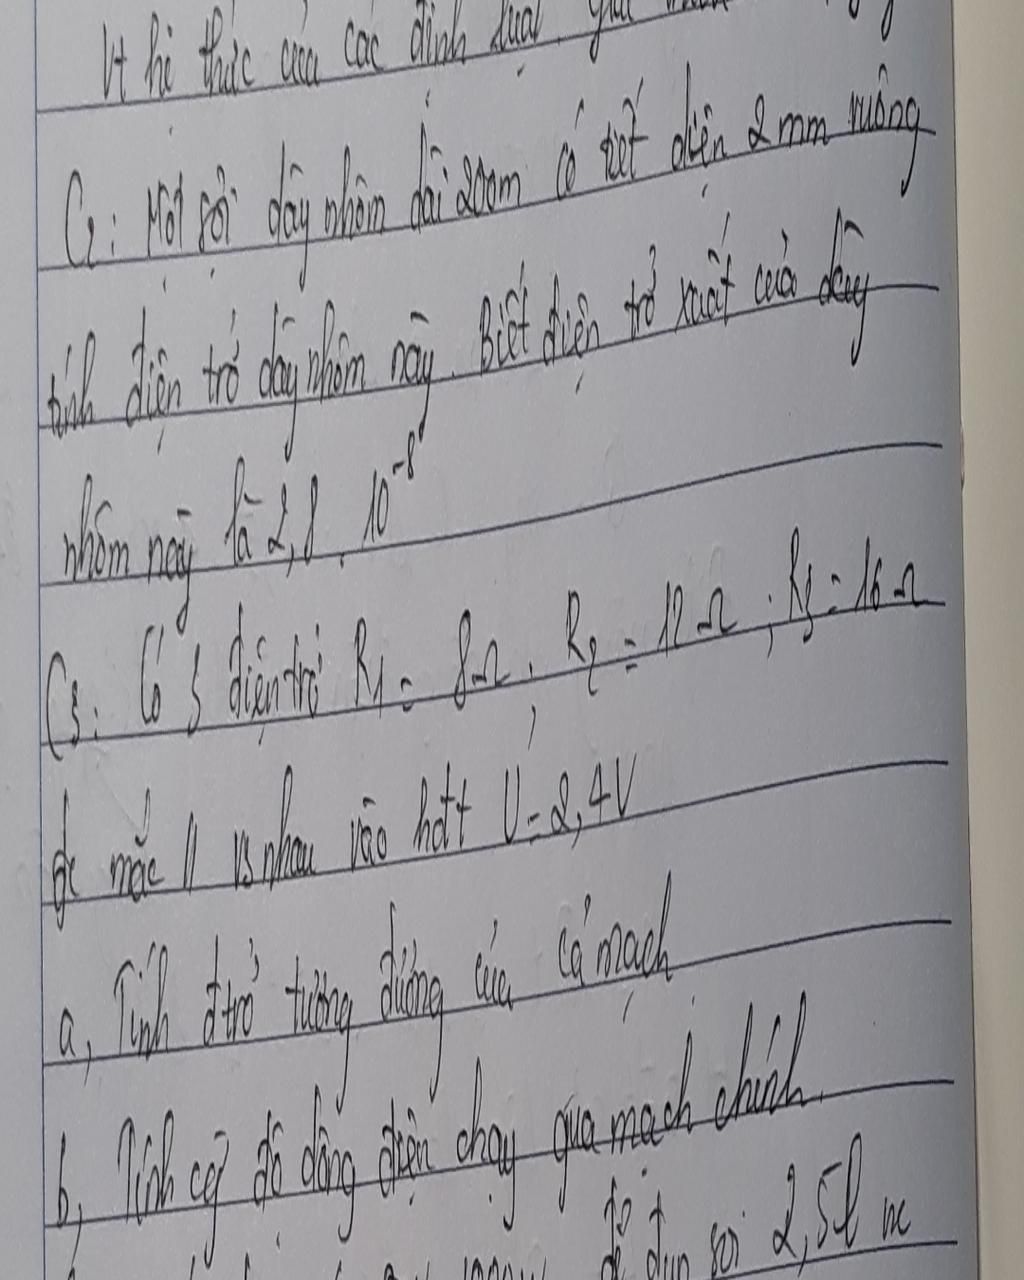 Vt hệ thức của các định luật
C2: Một sợi dây nhôm dài 200m có tiết diện 2 mm vuông
tính điện trở dây nhôm này. Biết điện trở xuất của dây
nhôm này là 2,8 . 10⁻⁸
C3: Có 3 điện trở R1 = 8Ω, R2 = 12Ω ; R3 = 16Ω
đc mắc // vs nhau vào hđtt U = 2,4V
a, Tính đ trở tương đương của cả mạch
b, Tính cg độ dòng điện chạy qua mạch chính.
để đun sôi 2,5l nc